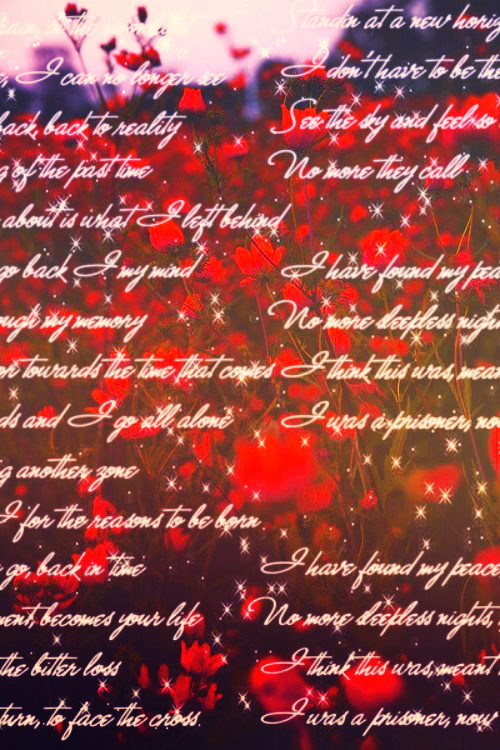 rain, in the
e, I can no longer see
back, back to reality
g of the past time
about is what I left behind
go back I my mind
ough my memory
or towards the time that comes
ds and I go all alone
g another zone
I for the reasons to be born
go, back in time
ment, becomes your life
the bitter loss
turn, to face the cross
Standin at a new horiz
I don't have to be th
See the sky and feel so
No more they call
I have found my pea
No more sleepless nigh
I think this was, mean
I was a prisoner, no
I have found my peace
No more sleepless nights,
I think this was, meant
I was a prisoner, now